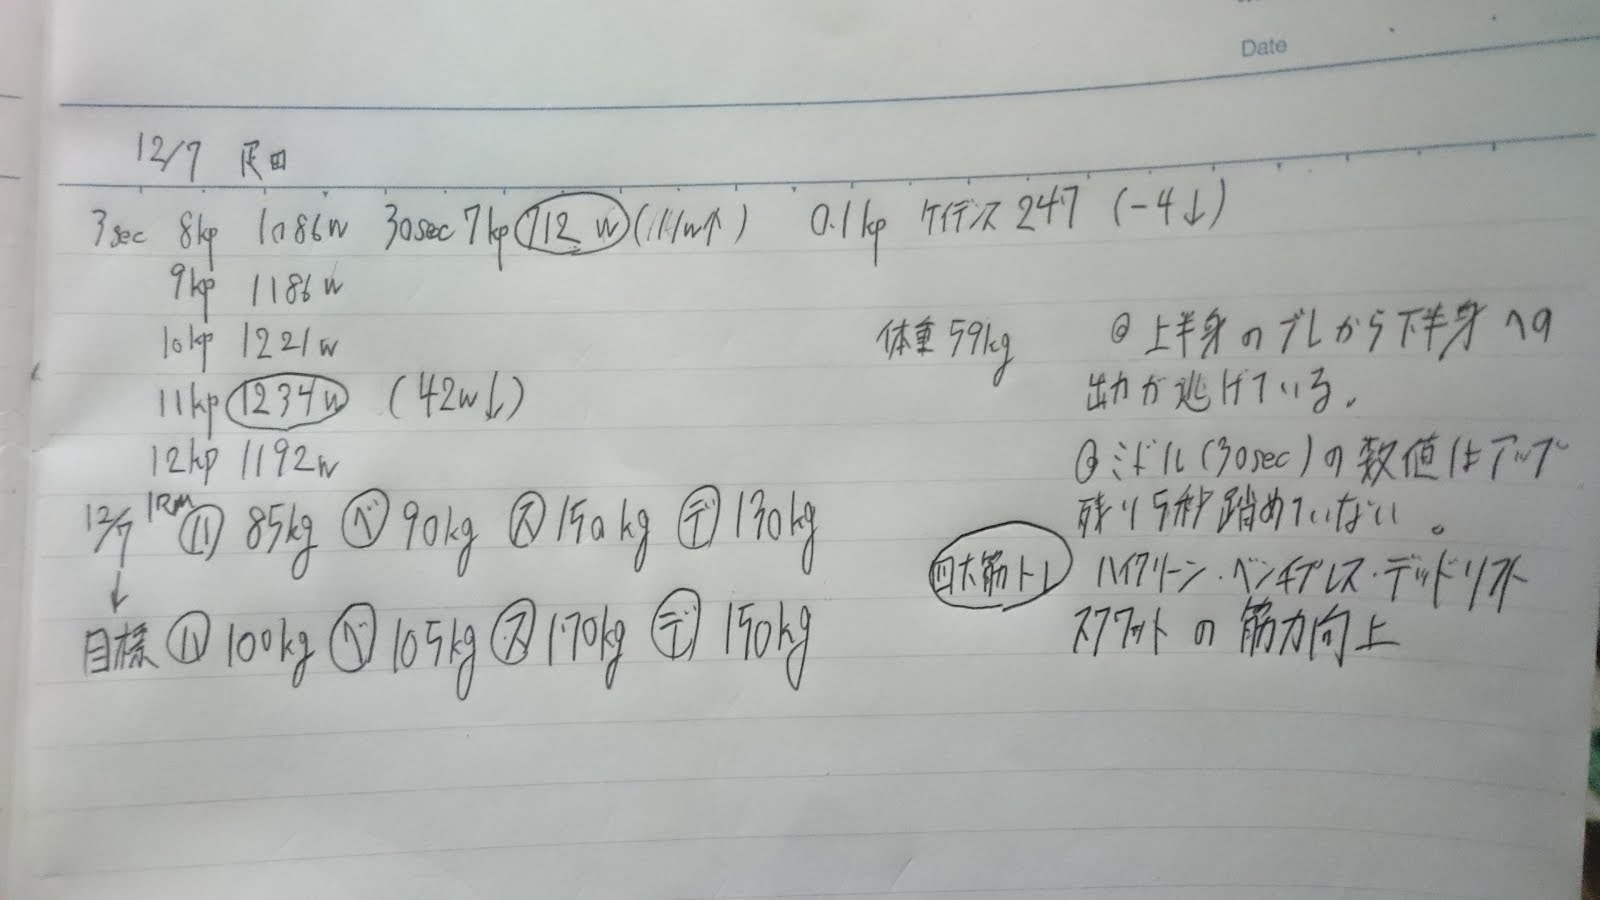 Date
12/7 疋田
3sec 8kp 1086w 30sec 7kp 712w (111w↑) 0.1kp ケイデンス 247 (-4↓)
9kp 1186w
10kp 1221w
体重 59kg ◎上半身のブレから下半身への
11kp 1234w (42w↓) 出力が逃げている。
12kp 1192w ◎ミドル(30sec)の数値はアップ
12/7 1RM ハ 85kg ベ 90kg ス 150kg デ 130kg 残り5秒踏めていない。
四大筋トレ ハイクリーン・ベンチプレス・デッドリフト
↓
目標 ハ 100kg ベ 105kg ス 170kg デ 150kg スクワットの筋力向上